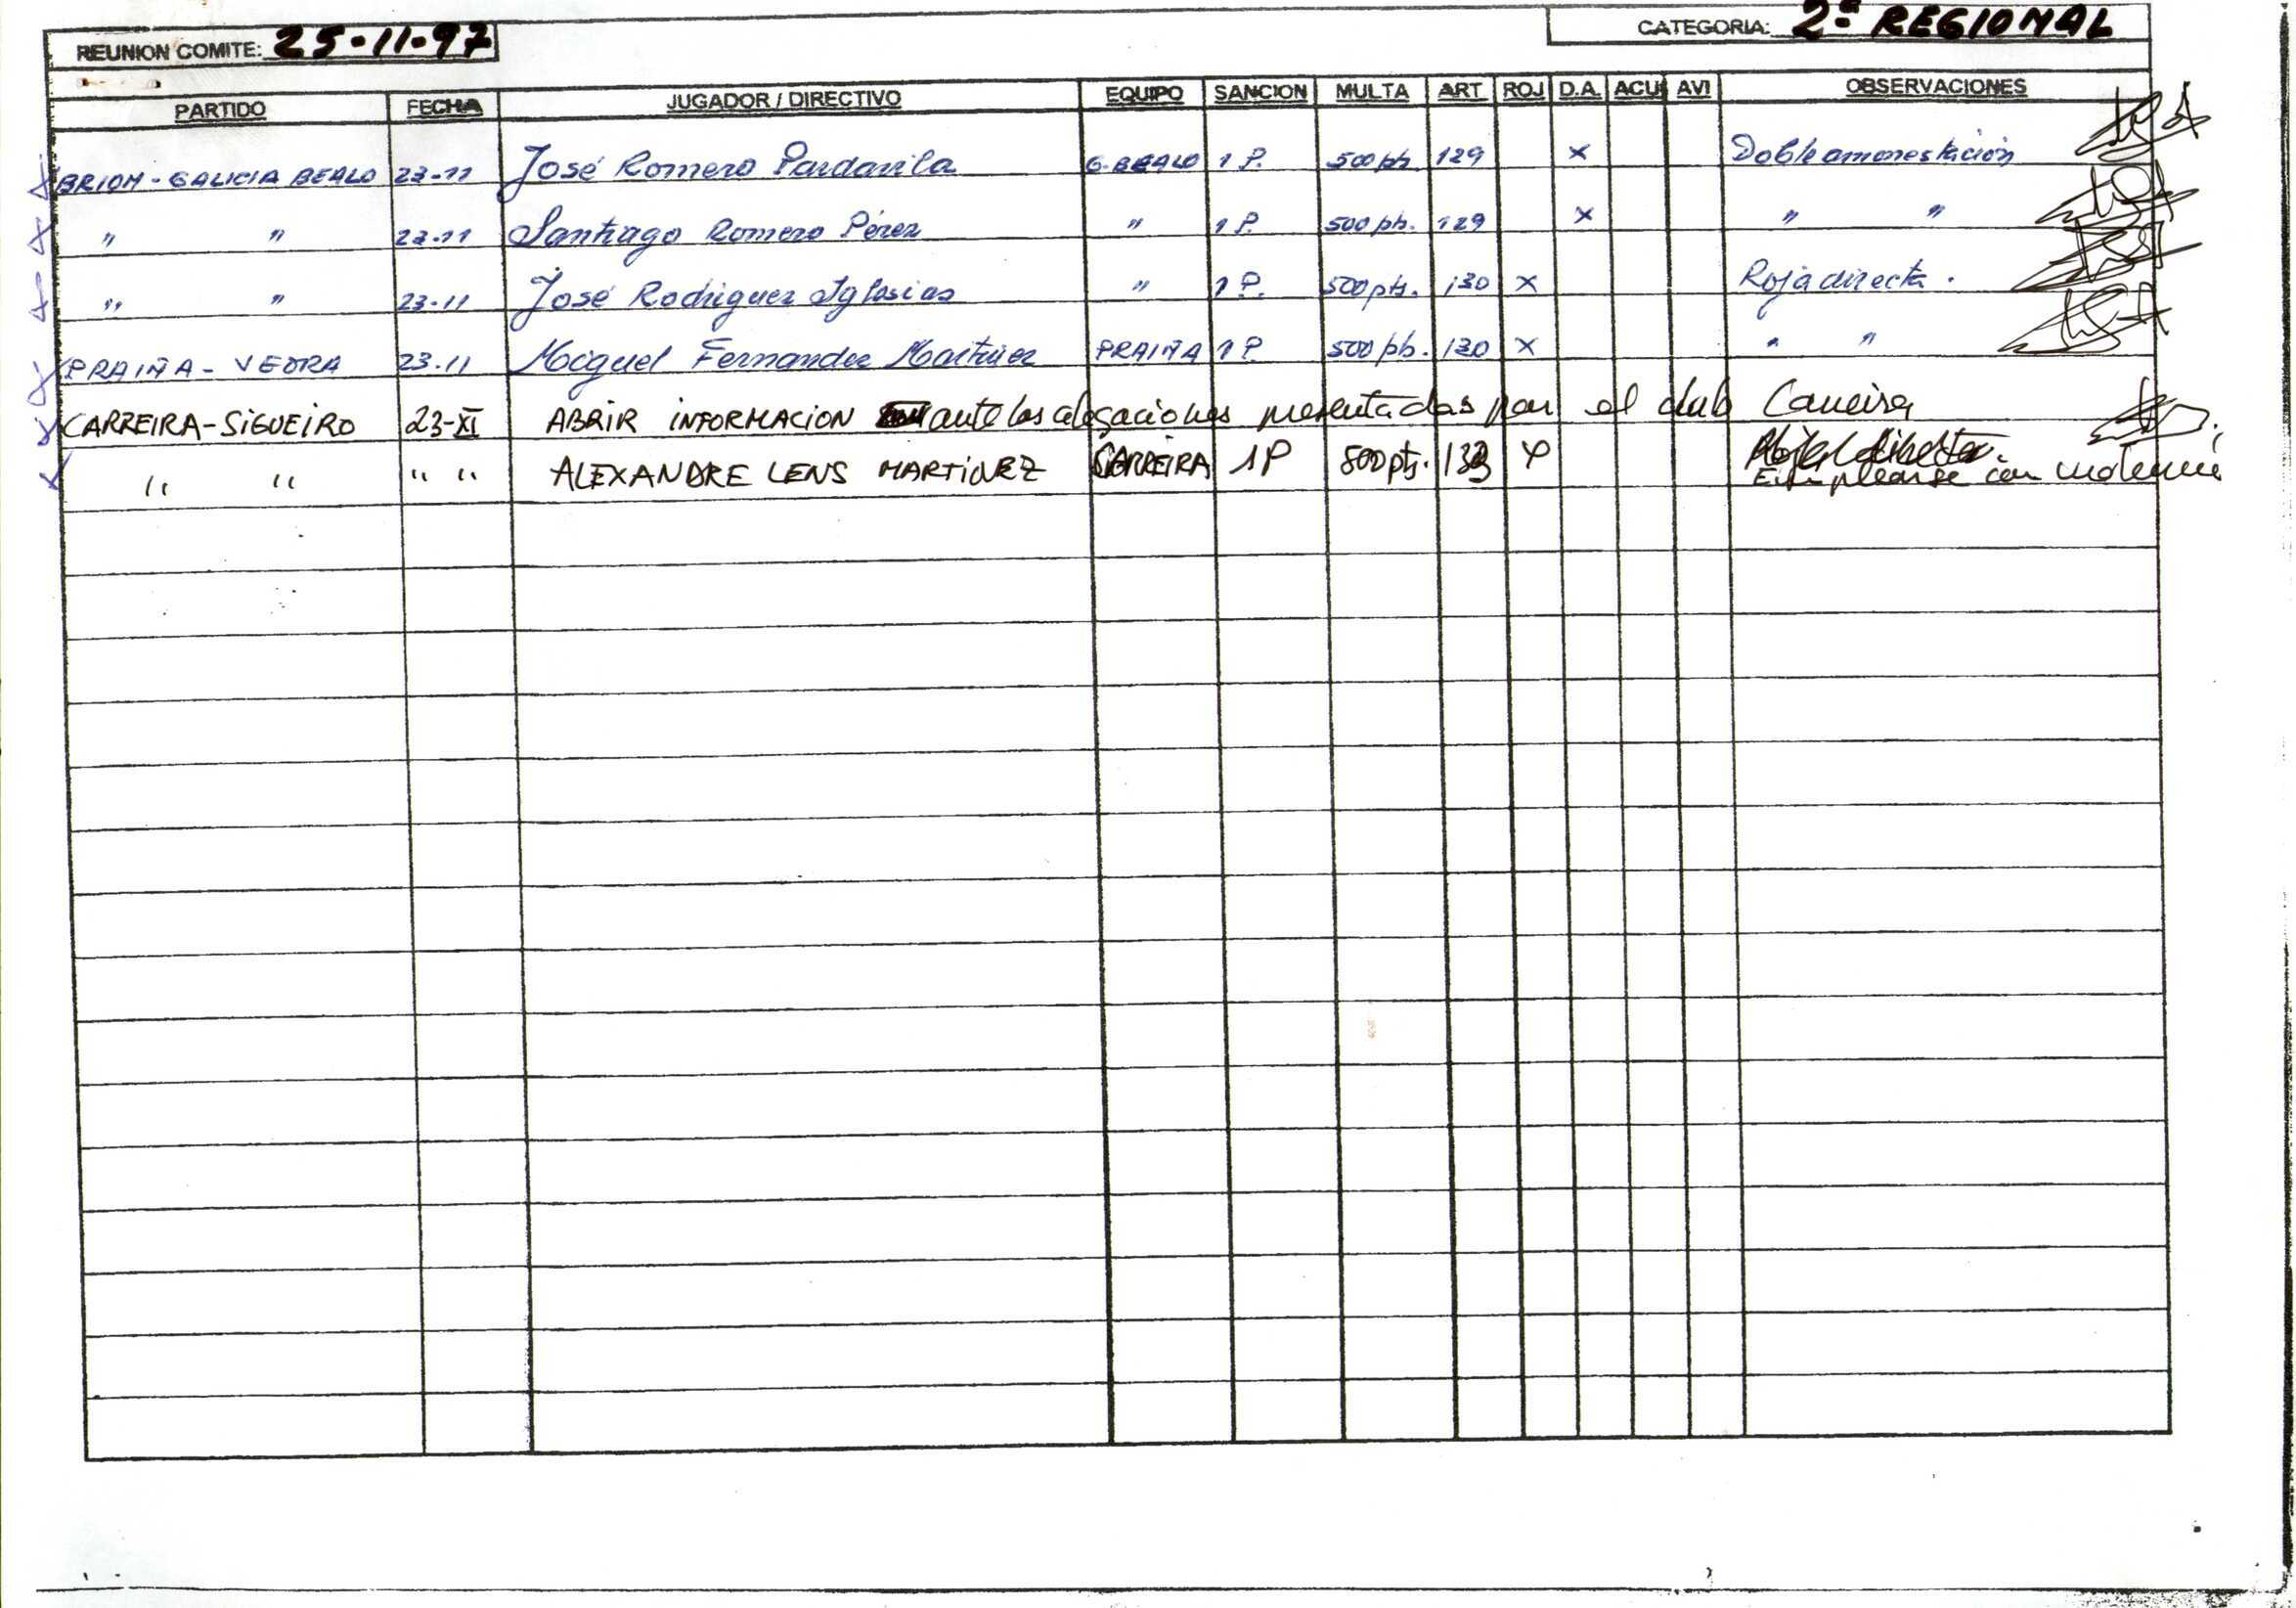 REUNION COMITE: 25-11-97 CATEGORIA: 2ª REGIONAL
PARTIDO FECHA JUGADOR / DIRECTIVO EQUIPO SANCION MULTA ART ROJ D.A. ACU AVI OBSERVACIONES
BRION - GALICIA BEALO 23-11 José Romero Pardavila G. BEALO 1 P. 500 pts. 129 x Doble amonestación
" " 23-11 Santiago Romero Pérez " 1 P. 500 pts. 129 x " "
" " 23-11 José Rodriguez Iglesias " 1 P. 500 pts. 130 x Roja directa.
PRAIÑA - VEDRA 23-11 Miguel Fernandez Martinez PRAIÑA 1 P. 500 pts. 130 x " "
CARREIRA-SiGUEiRO 23-XI ABRIR iNFORMACION ante las alegaciones presentadas por el club Carreira
" " " " ALEXANDRE LENS MARTiNEZ CARREIRA 1P 500 pts. 133 x Emplearse con violencia